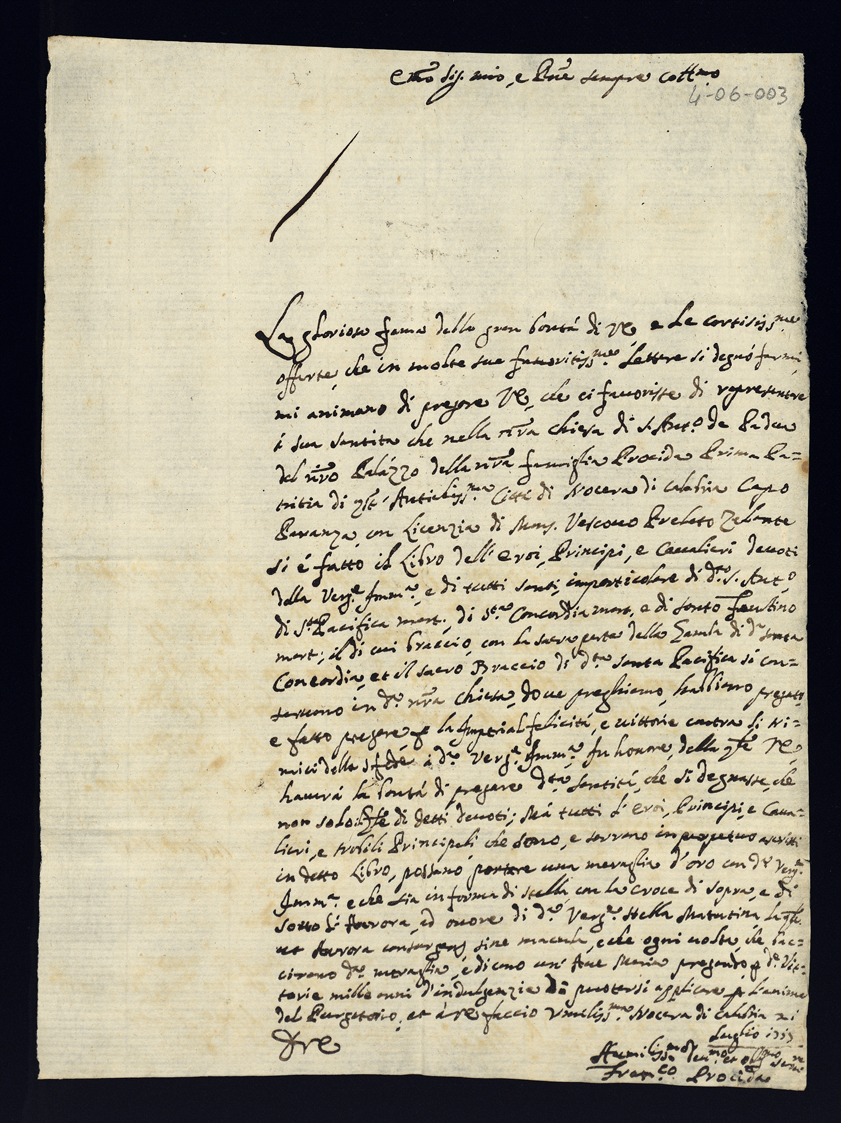 Emo Sig. mio, e Pne sempre Coll.mo
4-06-003
La gloriosa fama della gran bontá di VE, e Le cortisiss.me
offerte, che in molte sue favoritiss.me Lettere si degnó farmi,
mi animano di pregare VE, che ci favorisse di representare
á sua santita che nella nra Chiesa di S. Ant.o de Padua
del nro Palazzo della nra famiglia Procida Prima Pa=
tritia di Antichiss.ma Cittá di Nocera di Calabria Capo
Paranza, con Licenzia di Mons. Vescovo Prelato Zelante
si é fatto il Libro dell'Eroi, Principi, e Cavalieri devoti
della Verg.e Imm.a, e di tutti santi, imparticolare di d.o S. Ant.o
di S.ta Pacifica mart., di S.ta Concordia mart, e di santo Faustino
mart; il di cui braccio, con la sacra parte della di d.a Santa
Concordia, et il sacro Braccio di d.ta santa Pacifica si con=
servano in d.a nra Chiesa, dove preghiamo, habbiamo pregato,
e fatto pregare p la Imperial felicitá, e vittorie contra li ni=
mici della S. fede á d.a Verg.e Imm.a In honore della VE
haverá la bontá di pregare d.ta Santitá, che si degnasse, che
non solo di detti devoti; Má tutti l'Eroi, Principi, e Cava=
lieri, e Nobili Principali che sono, e sarrano in perpetuo ascritti
in detto Libro, possano portare una meraglia d'oro con d.a Verg.e
Imm.a e che sia in forma di stella, con la Croce di sopra, e di
sotto l'Aurora, ad onore di d.a Verg.e Stella Matutina,
ut Aurora consurgens sine macula, e che ogni volta, che bac=
cirano d.a meraglia, e dicono un'Ave Maria pregando p d.e Vit=
torie mille anni d'indulgenzie da puotersi applicare p l'anime
del Purgatorio, et á VE faccio Umiliss.ma Nocera di Calabria
Luglio
DVE
Humiliss.mo
Fran.co Procida